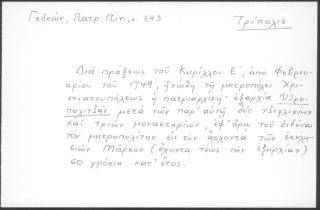 Γεδεών, Πατρ. Πιν., σ. 643
Τρίπολις
Διά πράξεως τοῦ Κυρίλλου Ε΄, ἀπό Φεβρου-
αρίου τοῦ 1749, ἡνώθη τῇ μητροπόλει Χρι-
στιανουπόλεως ἡ πατριαρχική ἐξαρχία Ὑδρο-
πολιτσάς μετά τῶν παρ' αὐτῇ δύο τσιφλικίων
καί τριῶν μοναστηρίων, ἐφ' ὅρῳ τοῦ διδόναι
τόν μητροπολίτην εἰς τόν ἄρχοντα τῶν ἐκκλη-
σιῶν Μάρκον (ἔχοντα τέως τήν ἐξαρχίαν)
60 γρόσια κατ' ἔτος.